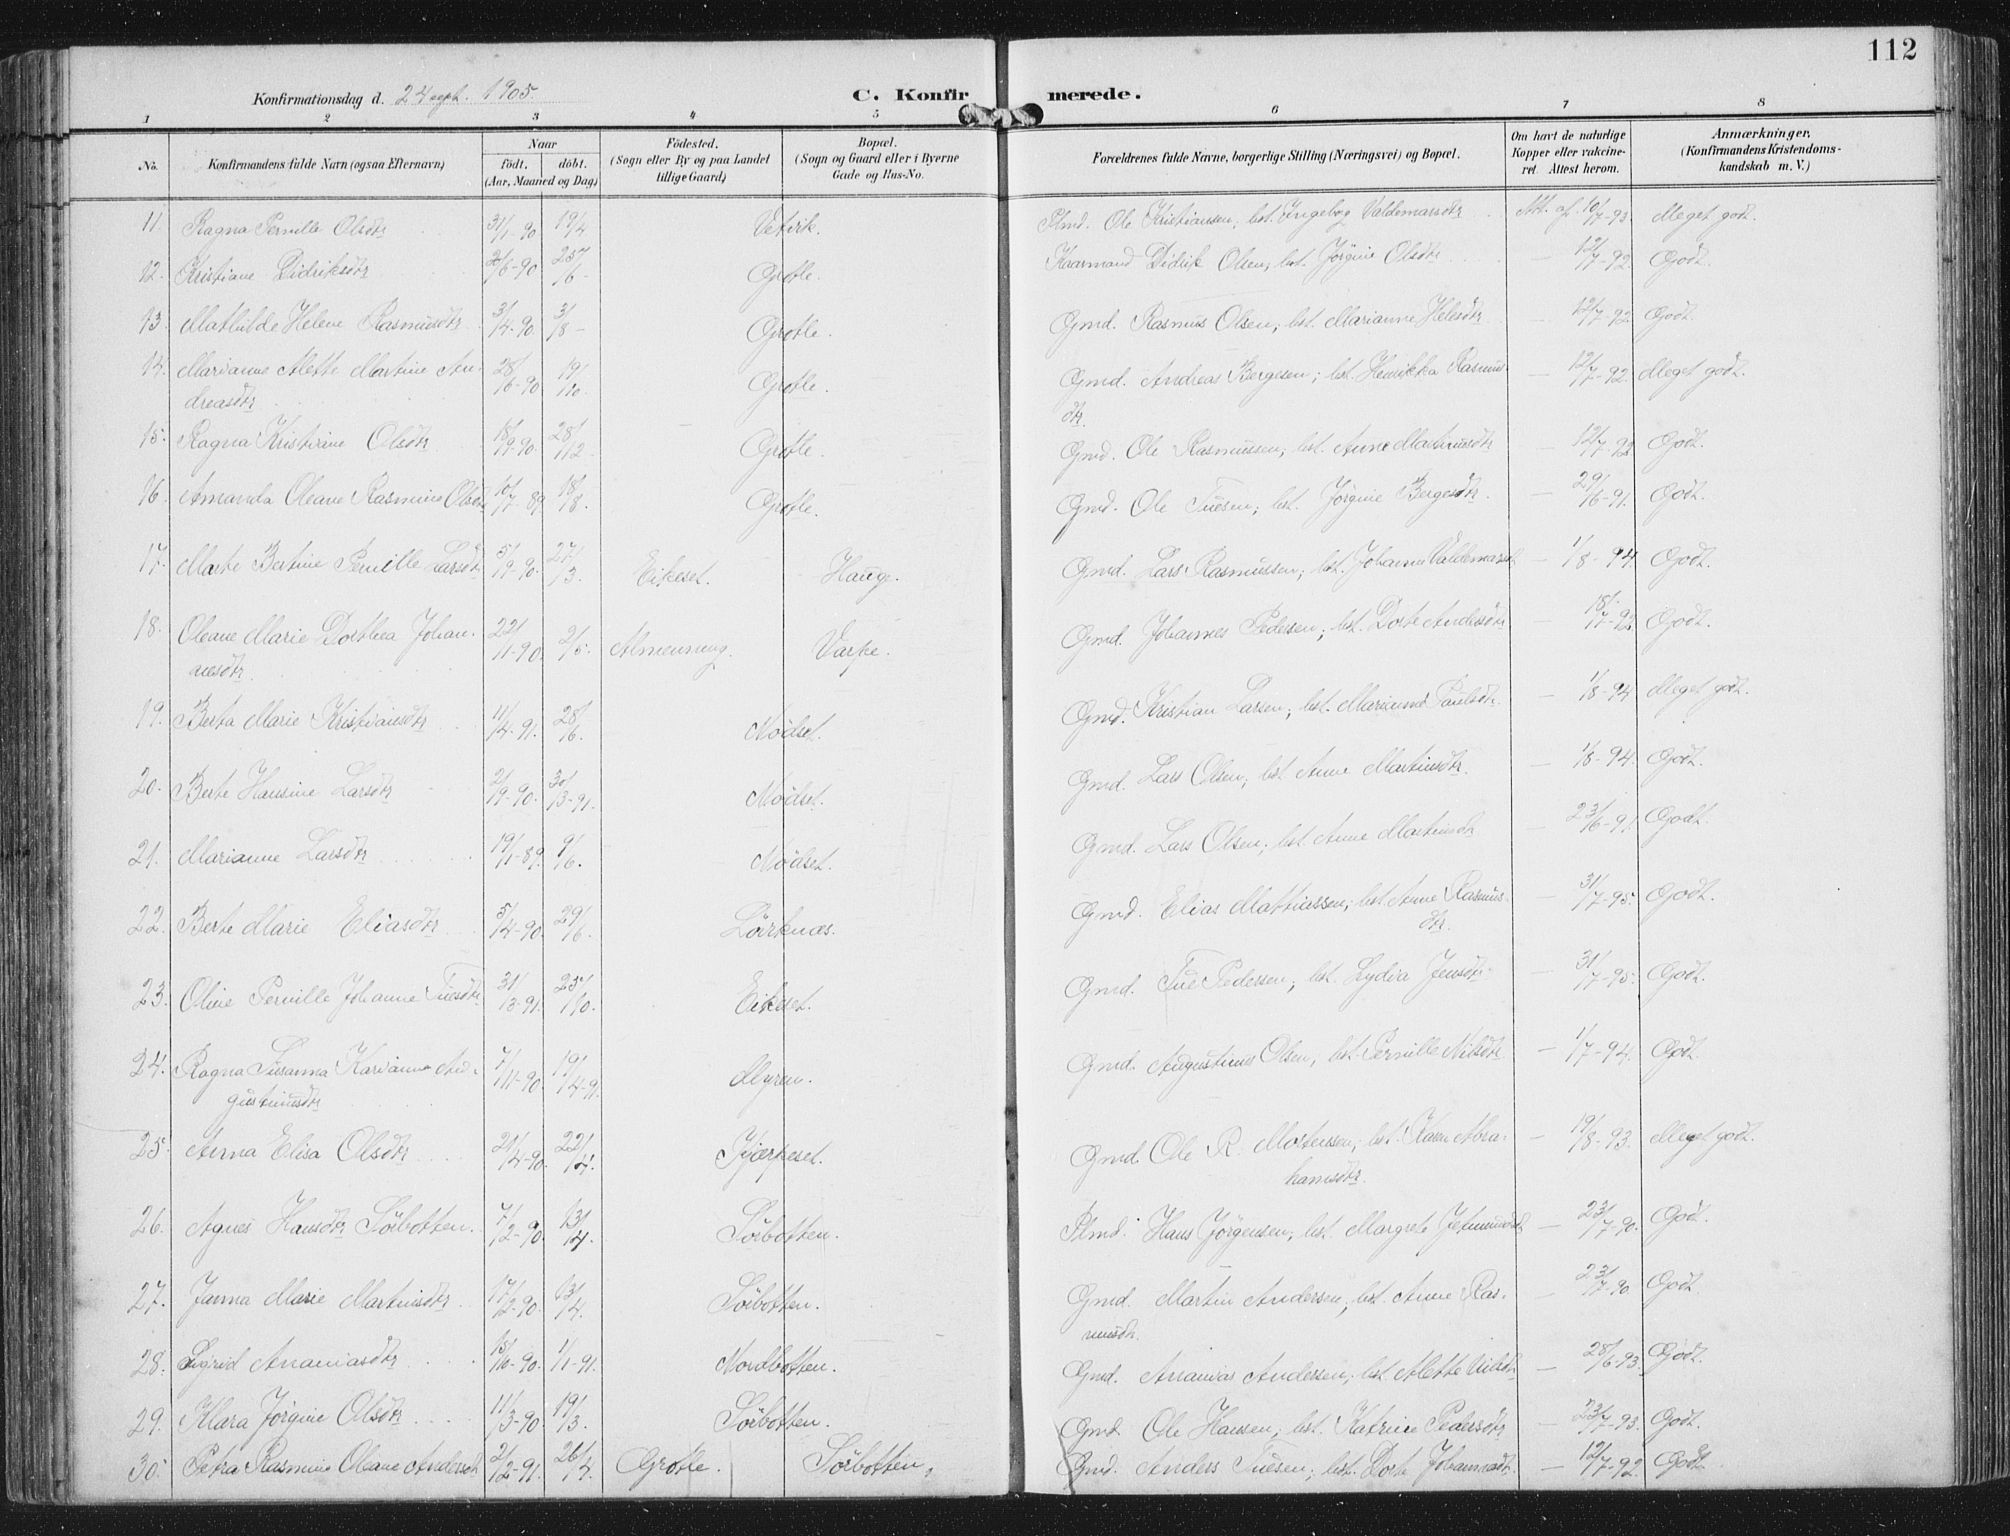 112
Konfirmationsdag d. 24 sept. 1905.
C. Konfirmerede.
1 2 3 4 5 6 7 8
No. Konfirmandens fulde Navn (ogsaa Efternavn) Naar födt. döbt. (Aar, Maaned og Dag) Födested. (Sogn eller By og paa Landet tillige Gaard) Bopæl. (Sogn og Gaard eller i Byerne Gade og Hus-No. Forældrenes fulde Navne, borgerlige Stilling (Næringsvei) og Bopæl. Om havt de naturlige Kopper eller vakcineret. Attest herom. Anmærkninger. (Konfirmandens Kristendomskundskab m. V.)
11. Ragna Pernille Olsdtr 31/1-90 19/4 Vetvik. Plmd. Ole Kristiansen, hst. Ingebog Valdemarsdtr Att. af 10/7-93 Meget godt.
12. Kristiane Didriksdtr 2/6-90 25/6 Grotle. Kaarmand Didrik Olsen, hst. Jörgine Olsdtr — 12/7-92 Godt.
13. Mathilde Helene Rasmusdtr 3/4-90 3/8 Grotle. Gmd. Rasmus Olsen, hst. Marianne Helesdtr 12/7-92 Godt.
14. Marianne Alette Martine An-
dreasdtr 28/6-90 19/10 Grotle. Gmd. Andreas Bergesen; hst. Henrikka Rasmus-
dtr — 12/7-92 Meget godt.
15. Ragna Kristiane Olsdtr 18/9-90 28/12 Grotle. Gmd. Ole Rasmussen, hst. Anne Martinusdtr — 12/7-92 Godt.
16. Amanda Oleane Rasmine Olsdtr 10/7-89 18/8. Grotle. Gmd. Ole Tuesen; hst. Jörgine Bergesdtr. — 29/6-91. Godt.
17. Marte Bertine Pernille Larsdtr 5/9-90. 27/3. Eikeset. Hauge. Gmd. Lars Rasmussen, hst. Johanne Valdemarsdt — 1/8-94. Godt.
18. Oleane Marie Dorthea Johan-
nesdtr 22/11-90. 2/5. Almenning. Varpe. Gmd. Johannes Pedersen; hst. Dorte Andersdtr — 18/7-92 Godt.
19. Berta Marie Kristiansdtr 11/4-91. 28/6. Nödset. Gmd. Kristian Larsen; hst. Marianne Paulsdtr. — 1/8-94 Meget godt.
20. Berte Hansine Larsdtr 2/9-90. 30/3-91. Nödset. Gmd. Lars Olsen, hst Anne Martinsdtr. — 1/8-94. Godt.
21. Marianne Larsdtr 19/1-89. 9/6. Nödset. Gmd. Lars Olsen, hst Anne Martinsdt — 23/6-91. Godt.
22. Berte Marie Eliasdtr 5/4-90. 29/6. Lörknæs. Gmd. Elias Mathiassen, hst Anne Rasmus-
dtr. 31/7-95. Godt.
23. Oline Pernille Johanne Tuesdtr 31/3-91. 25/10. Eikeset. Gmd. Tue Pedersen, hst. Lydia Jensdtr. — 31/7-95. Godt.
24. Ragna Susanna Karianna Au-
gustinusdtr 7/11-90. 19/4-91. Myren. Gmd Augustinus Olsen, hst. Pernille Nilsdtr — 1/7-94. Godt.
25. Anna Elisa Olsdtr 24/4-90. 22/4. Kjærkeset. Gmd. Ole R. Mortensen, hst. Karen Abra-
hamsdtr. — 19/8-93. Meget godt.
26. Agnes Hansdtr Sörbotten. 7/2-90. 13/4. Sörbotten. Plmd. Hans Jörgensen, hst. Margrete Jetmundsdt — 23/7-90. Godt.
27. Janna Marie Martinsdtr 17/2-90. 13/4. Sörbotten. Gmd. Martin Andersen, hst. Anne Ras-
musdtr. — 23/7-90. Godt.
28. Sigrid Ananiasdtr 15/10-90. 1/1-91. Nordbotten. Gmd. Ananias Andersen, hst. Alette Nilsdtr — 28/6-93. Godt.
29. Klara Jörgine Olsdtr 11/3-90 19/3. Sörbotten. Gmd Ole Hansen, hst. Katrine Pedersdtr — 23/7-93. Godt.
30. Petra Rasmine Oleane Andersdt 2/2-91. 26/4. Grotle. Sörbotten, Gmd. Anders Tuesen, hst. Dorte Johannesdt. — 12/7-92. Godt.